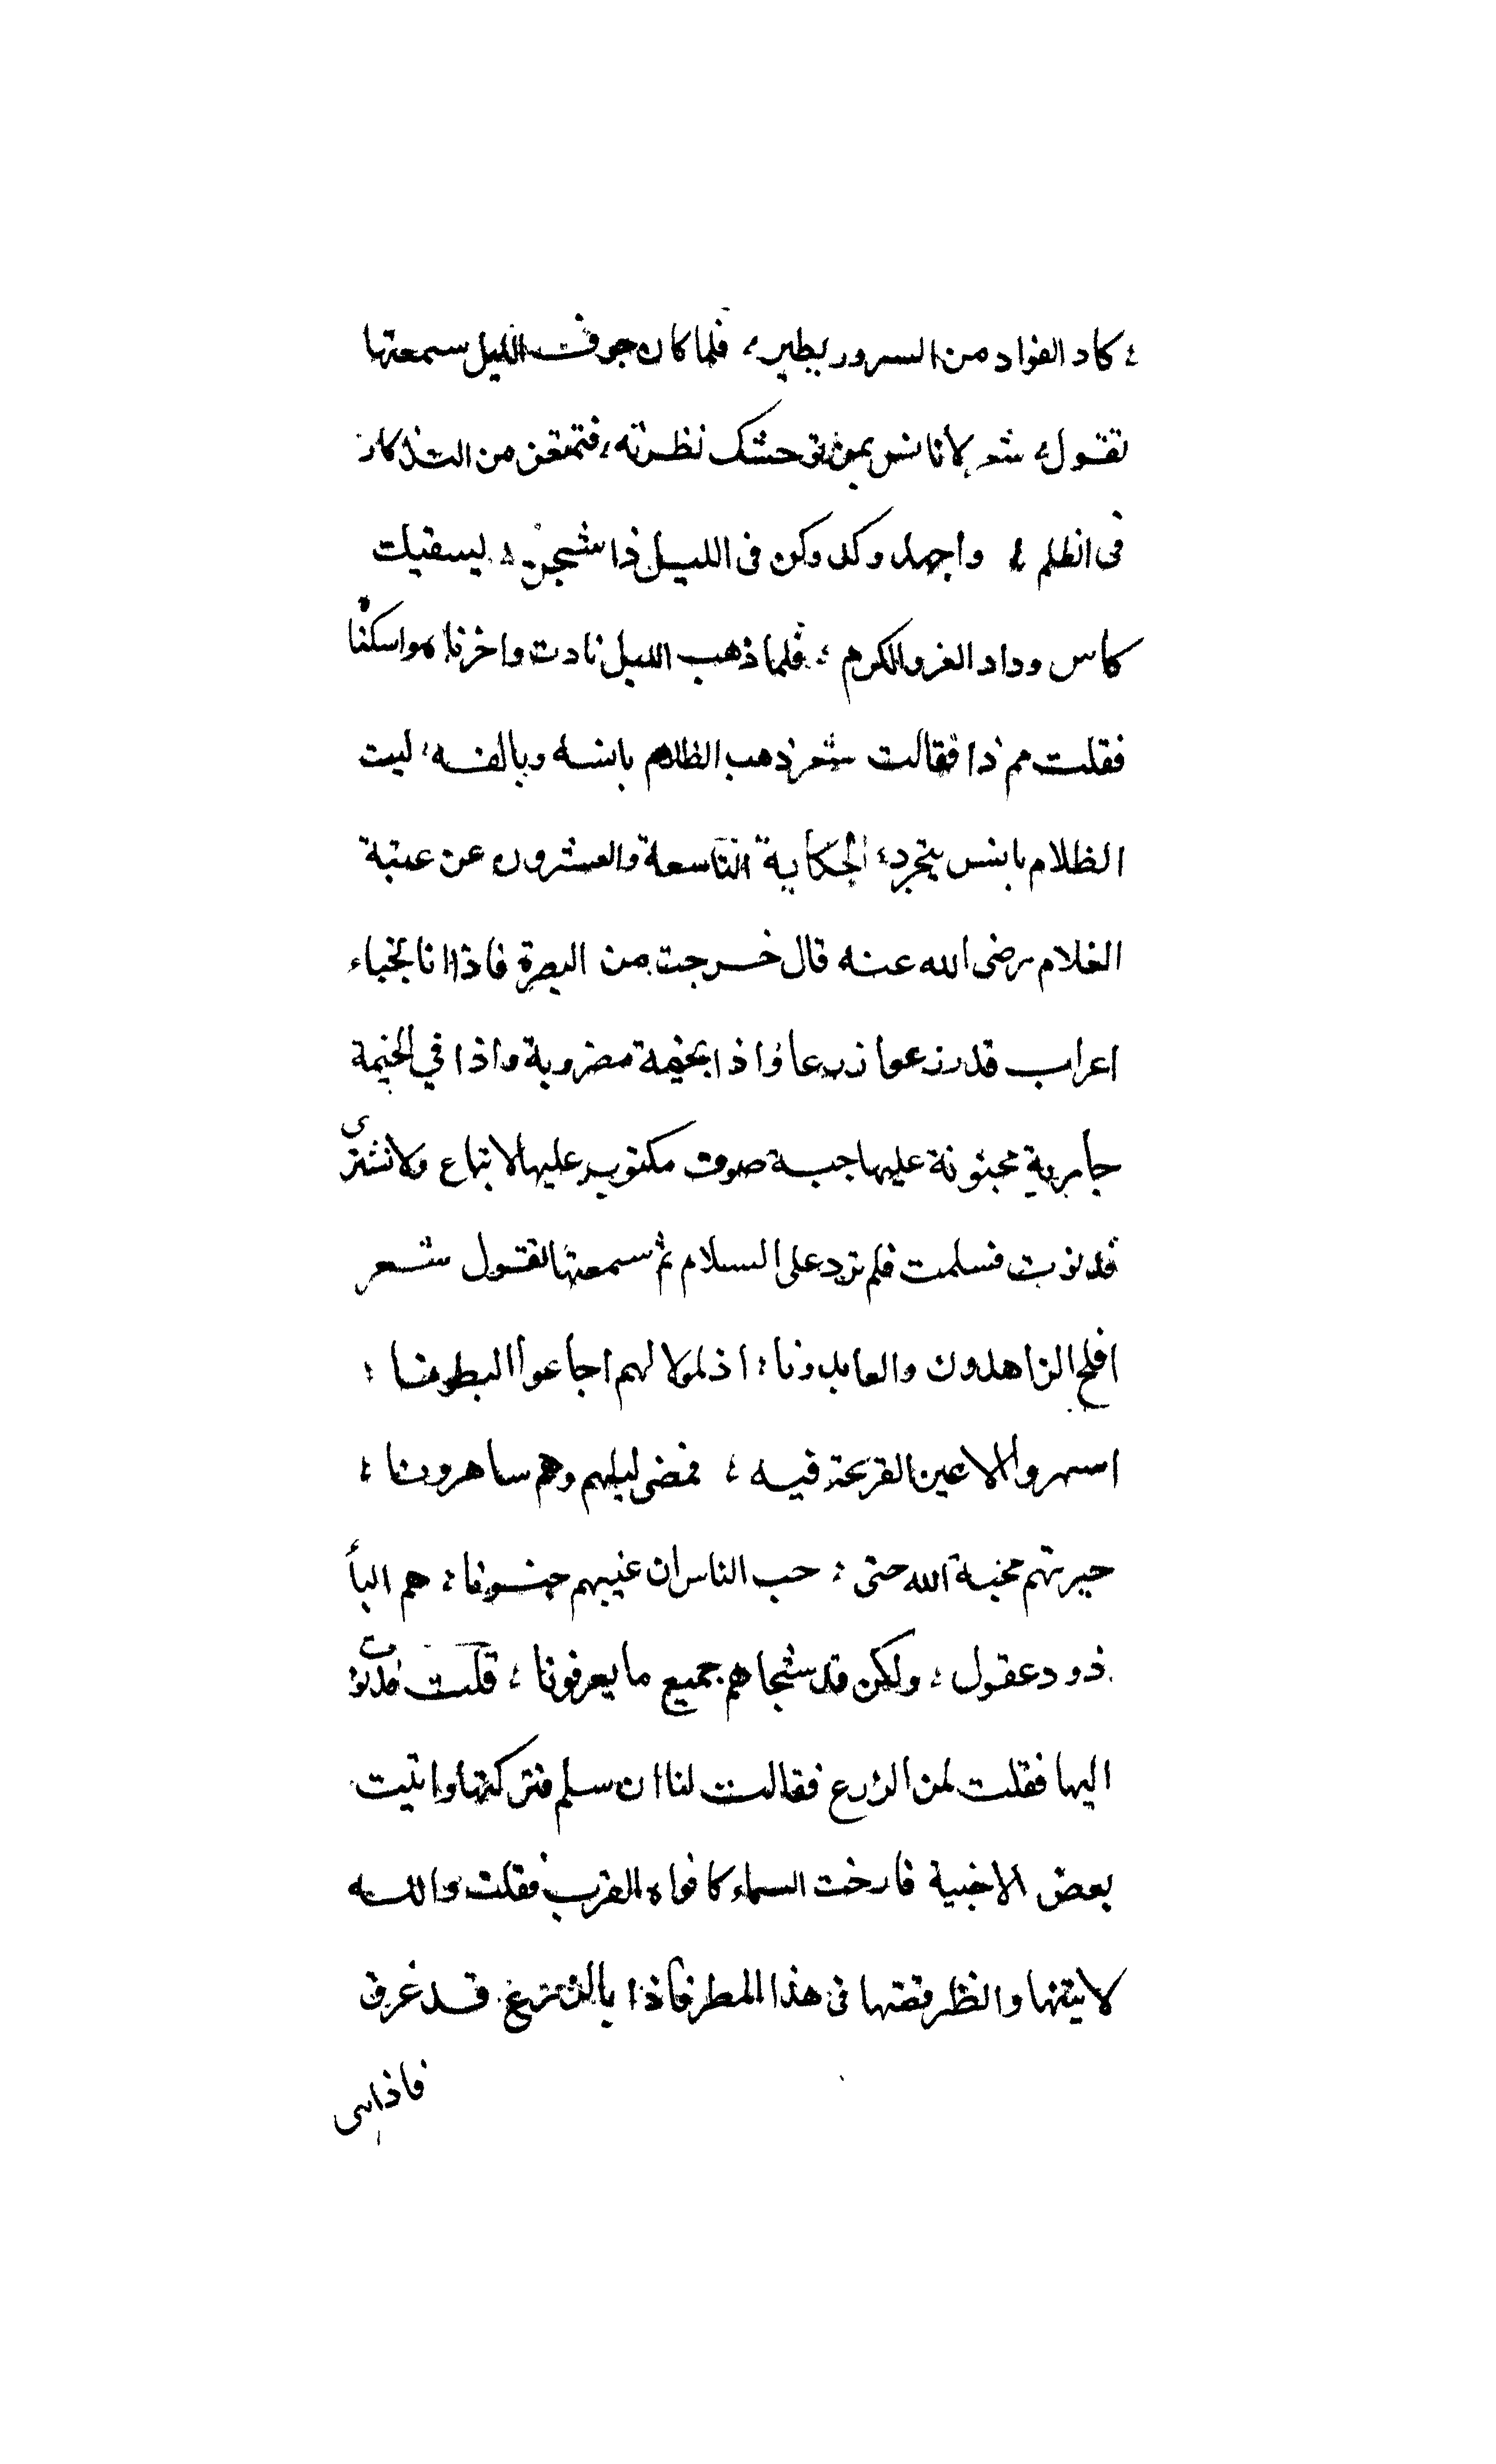 ؛ كاد الفواد من السرور يطير ؛ فلما كان جوف الليل سمعتها
تقول ؛ شعر لا تانس بمن توحشك نظرته ؛ فتمنعن من التذكار
فى الظلم ؛ واجهد وكد وكن فى الليل ذا شجن ؛ ليسقيك
كاس وداد العز والكرم ؛ فلما ذهب الليل نادت واحزناه واسكنا
فقلت مم ذا فقالت شعر ذهب الظلام بانسه وبالفه ؛ ليت
الظلام بانس يتجرد ؛ الحكاية التاسعة والعشرون عن عتبة
الغلام رضى الله عنه قال خرجت من البصرة فاذا انا بخباء
اعراب قد زرعوا زرعا واذا بخيمة مضروبة واذا في الخيمة
جارية مجنونة عليها جبة صوف مكتوب عليها لا تباع ولا تشترى
فدنوت فسلمت فلم ترد على السلام ثم سمعتها تقول شعر
افلح الزاهدون والعابدونا ؛ اذ لمولا لهم اجاعوا البطونا ؛
اسهروا الاعين القريحة فيه ؛ فمضى ليلهم وهم ساهرونا ؛
حيرتهم محبة الله حتى ؛ حسب الناس ان فيهم جنونا ؛ هم البا
ذوو عقول ؛ ولكن قد شجاهم جميع ما يعرفونا ؛ قلت فدنوت
اليها فقلت لمن الزرع فقالت لنا ان سلم فتركتها واتيت
بعض الاخبية فارخت السماء كافواه القرب فقلت والله
لاتينها وانظر قصتها فى هذا المطر فاذا بالزرع قد غرق
فاذا هى